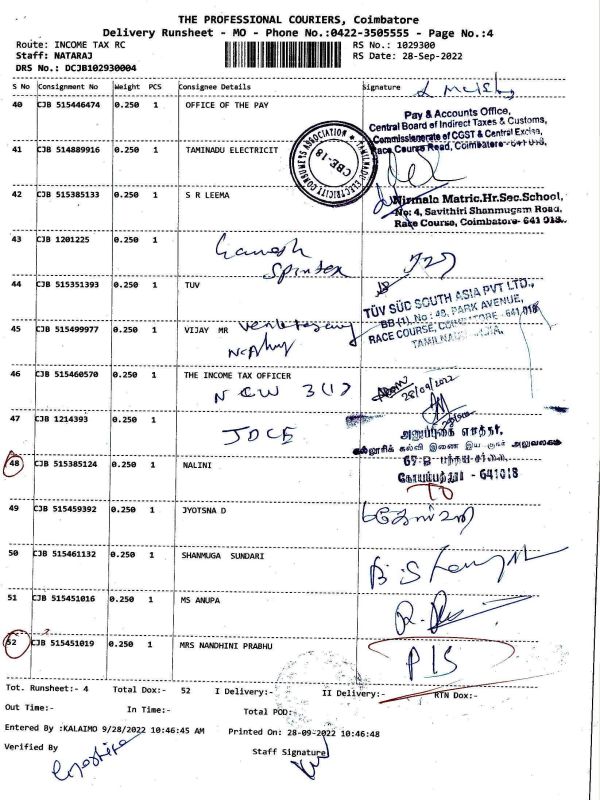 THE PROFESSIONAL COURIERS, Coimbatore
Delivery Runsheet - MO - Phone No.:0422-3505555 - Page No.:4
Route: INCOME TAX RC RS No.: 1029300
Staff: NATARAJ RS Date: 28-Sep-2022
DRS No.: DCJB102930004
S No Consignment No Weight PCS Consignee Details Signature
40 CJB 515446474 0.250 1 OFFICE OF THE PAY
Pay & Accounts Office,
Central Board of Indirect Taxes & Customs,
Commissionerate of CGST & Central Excise,
Race Course Road, Coimbatore - 641 018.
41 CJB 514889916 0.250 1 TAMINADU ELECTRICIT
TAMILNADU ELECTRICITY CONSUMERS ASSOCIATION
CBE-18
42 CJB 515385133 0.250 1 S R LEEMA
Nirmala Matric.Hr.Sec.School,
No: 4, Savithiri Shanmugam Road,
Race Course, Coimbatore - 641 018.
43 CJB 1201225 0.250 1
Ganesh
Spintex
44 CJB 515351393 0.250 1 TUV
TÜV SÜD SOUTH ASIA PVT LTD.,
BB (1), No : 49, PARK AVENUE,
RACE COURSE, COIMBATORE - 641 018
TAMILNADU INDIA.
45 CJB 515499977 0.250 1 VIJAY MR
46 CJB 515460570 0.250 1 THE INCOME TAX OFFICER
NCW 3(1)
28/09/2022
47 CJB 1214393 0.250 1
JDCE
கல்லூரிக் கல்வி இணை இயக்குநர் அலுவலகம்
கோயம்புத்தூர் - 641018
48 CJB 515385124 0.250 1 NALINI
49 CJB 515459392 0.250 1 JYOTSNA D
50 CJB 515461132 0.250 1 SHANMUGA SUNDARI
51 CJB 515451016 0.250 1 MS ANUPA
52 CJB 515451019 0.250 1 MRS NANDHINI PRABHU
P/S
Tot. Runsheet:- 4 Total Dox:- 52 I Delivery:- II Delivery:- RTN Dox:-
Out Time:- In Time:- Total POD:-
Entered By :KALAIMO 9/28/2022 10:46:45 AM Printed On: 28-09-2022 10:46:48
Verified By Staff Signature